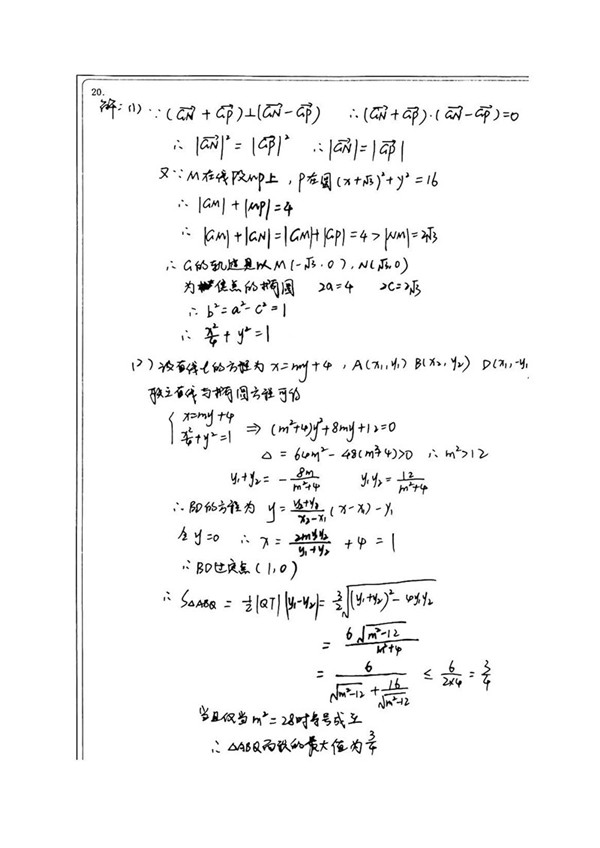 20.
解:(1) ∵ (GN + GP)⊥(GN - GP) ∴ (GN + GP)·(GN - GP)=0
∴ |GN|² = |GP|² ∴ |GN| = |GP|
又∵M在线段NP上,P在圆(x+√3)²+y²=16
∴ |GM| + |MP| = 4
∴ |GM| + |GN| = |GM| + |GP| = 4 > |NM| = 2√3
∴ G的轨迹是以M(-√3,0), N(√3,0)
为焦点的椭圆 2a=4 2c=2√3
∴ b²=a²-c²=1
∴ x²/4 + y² = 1
(2) 设直线l的方程为 x=my+4, A(x₁,y₁) B(x₂,y₂) D(x₁,-y₁
联立直线与椭圆方程可的
{ x=my+4
x²/4+y²=1 ⇒ (m²+4)y²+8my+12=0
Δ = 64m² - 48(m²+4)>0 ∴ m²>12
y₁+y₂ = - 8m/(m²+4) y₁y₂ = 12/(m²+4)
∴ BD的方程为 y = (y₂+y₂)/(x₂-x₁) (x-x₁) - y₁
令 y=0 ∴ x = 2my₁y₂/(y₁+y₂) + 4 = 1
∴ BD过定点(1,0)
∴ S△ABQ = 1/2|QT||y₁-y₂| = 3/2 √((y₁+y₂)² - 4y₁y₂)
= 6√(m²-12)/(m²+4)
= 6/(√(m²-12) + 16/√(m²-12)) ≤ 6/(2×4) = 3/4
当且仅当 m²=28时等号成立
∴ △ABQ面积的最大值为3/4